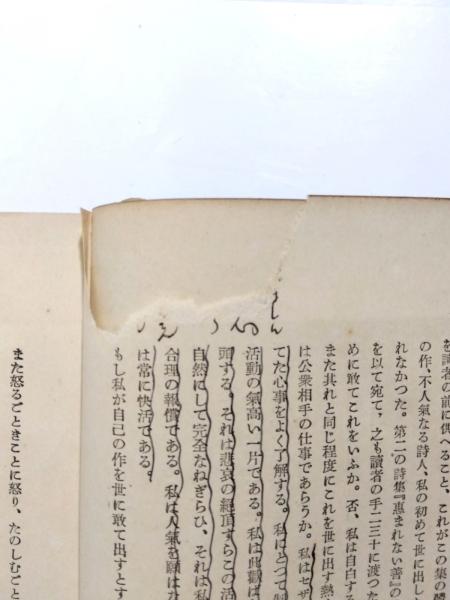 を讀者の前に供へること、これがこの集の
の作、不人氣なる詩人、私の初めて世に出し
れなかつた。第二の詩集『惠まれない善』の
を以て宛て，之も讀者の手二三十に渡つた
めに敢てこれをいふか。否、私は自白する
また其れと同じ程度にこれを世に出す熱
は公衆相手の仕事であらうか。私はセザ
てた心事をよく了解する。私はとつて
活動の氣高い一片である。私は此歡
頭する。それは悲哀の絕頂すらこの活
自然にして完全なねぎらひ、それは私
合理の報償である。私は人氣を願はな
は常に快活である。
もし私が自己の作を世に敢て出すとす
また怒るごときことに怒り、たのしむごと